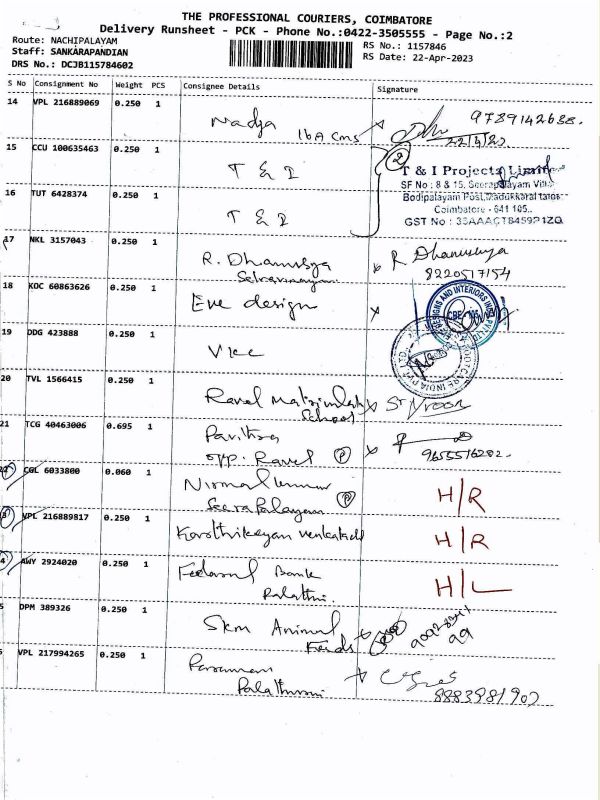 THE PROFESSIONAL COURIERS, COIMBATORE
Delivery Runsheet - PCK - Phone No.:0422-3505555 - Page No.:2
Route: NACHIPALAYAM
Staff: SANKARAPANDIAN
DRS No.: DCJB115784602
RS No.: 1157846
RS Date: 22-Apr-2023
S No Consignment No Weight PCS Consignee Details Signature
14 VPL 216889069 0.250 1 Nadya IBA Cms 9789142688.
22/4/23
15 CCU 100635463 0.250 1 T & I 2
T & I Projects Limited
SF No : 8 & 15, Seerapalayam Village
Bodipalayam Post, Madukkarai taluk
Coimbatore - 641 105.
16 TUT 6428374 0.250 1 T & I
GST No : 33AAACT8459P1ZQ
17 NKL 3157043 0.250 1 R. Dhanusya R Dhanushya
8220517154
18 KDC 60863626 0.250 1 Eve design
DESIGNS AND INTERIORS
CBE
19 DDG 423888 0.250 1 VKC
CARE INDIA PVT LTD
20 TVL 1566415 0.250 1 Ravel School
21 TCG 40463006 0.695 1 Pavithra
Opp. Ravel P 9655516202.
22 CGL 6033800 0.060 1 Nirmal kumar H/R
Seerapalayam P
23 VPL 216889817 0.250 1 Karthikeyan H/R
24 AWY 2924020 0.250 1 Federal Bank H/L
DPM 389326 0.250 1 Skm Animal
Feeds
VPL 217994265 0.250 1 8883981902